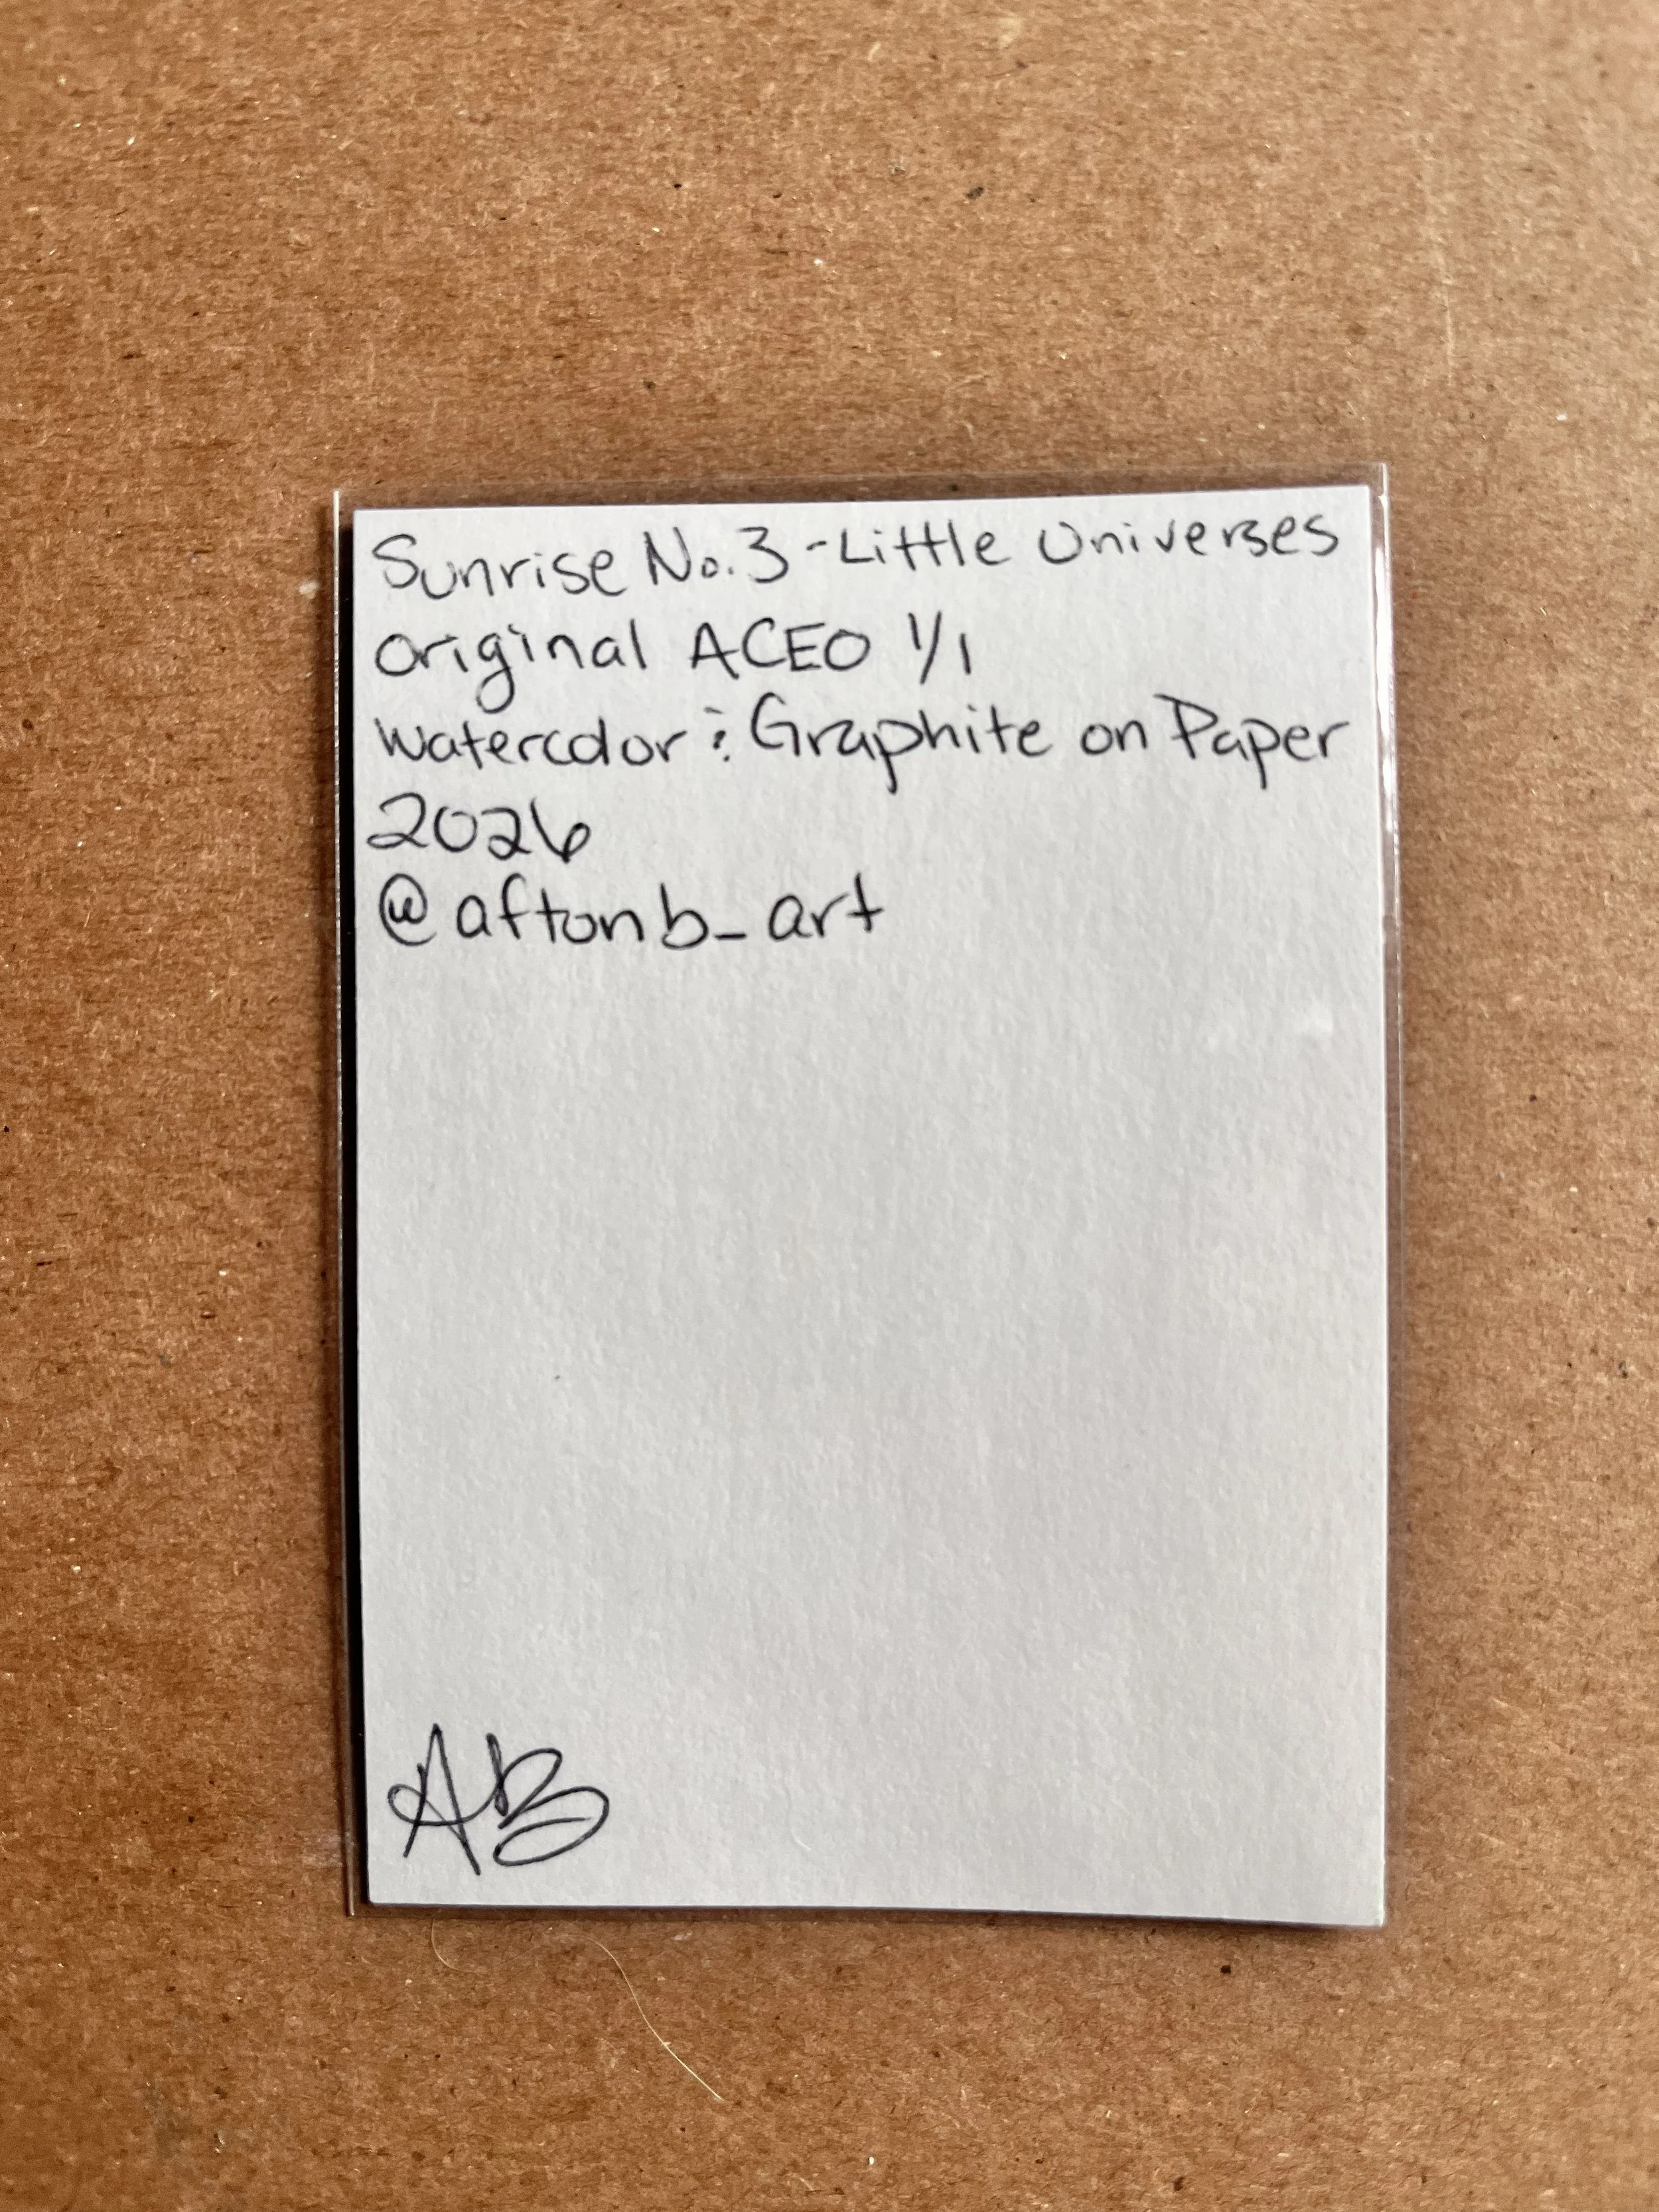 Sunrise No. 3 - Little Universes
Original ACEO 1/1
Watercolor & Graphite on Paper
2026
@aftonb_art
AB